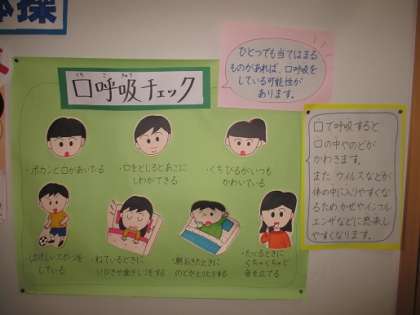 体操
口呼吸チェック
くち こ きゅう
ひとつでも当てはまる
ものがあれば、口呼吸を
している可能性が
あります。
・ポカンと口があいている
・口をとじるとあごに
しわができる
・くちびるがいつも
かわいている
・はげしいスポーツを
している
・ねているときに
いびきや歯ぎしりをする
・朝おきたときに
のどがヒリヒリする
・たべるときに
くちゃくちゃと
音を立てる
口で呼吸すると
口の中やのどが
かわきます。
また、ウイルスなどが
体の中に入りやすくな
るため かぜやインフル
エンザなどに感染し
やすくなります。